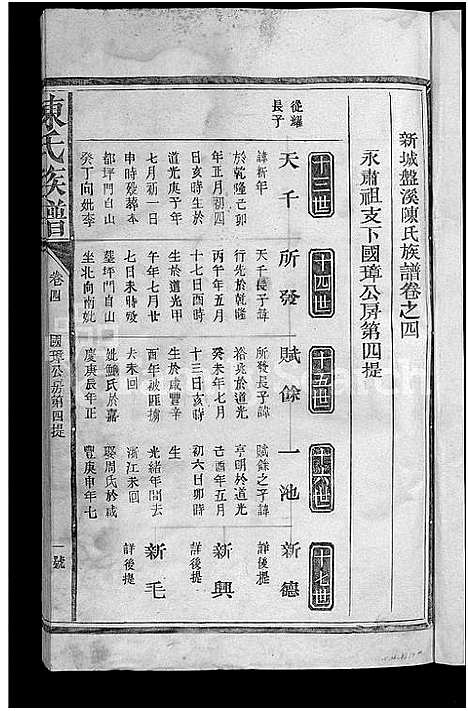 新城盤溪陳氏族譜卷之四
永肅祖支下國璋公房第四提
十三世
十四世
十五世
十六世
十七世
從耀
長子
天千
諱新年
於乾隆己卯
年正月初四
日亥時生於
道光庚子年
七月初一日
申時殁葬本
都坪門白山
癸丁向妣李
所發
天千長子諱
行先於乾隆
丙午年五月
十七日酉時
生於道光甲
午年七月廿
七日未時殁
葬坪門白山
坐北向南妣
賦餘
所發長子諱
裕兵於道光
癸未年七月
十三日亥時
生於咸豐辛
酉年被匪擄
去未回
妣鮑氏於嘉
慶庚辰年正
一池
賦餘之子諱
亨明於道光
己酉年五月
初六日卯時
生
光緒年間去
浙江未回
娶周氏於咸
豐庚申年七
新德
詳後提
新興
詳後提
新毛
詳後提
陳氏族譜
卷四
國璋公房第四提
一號